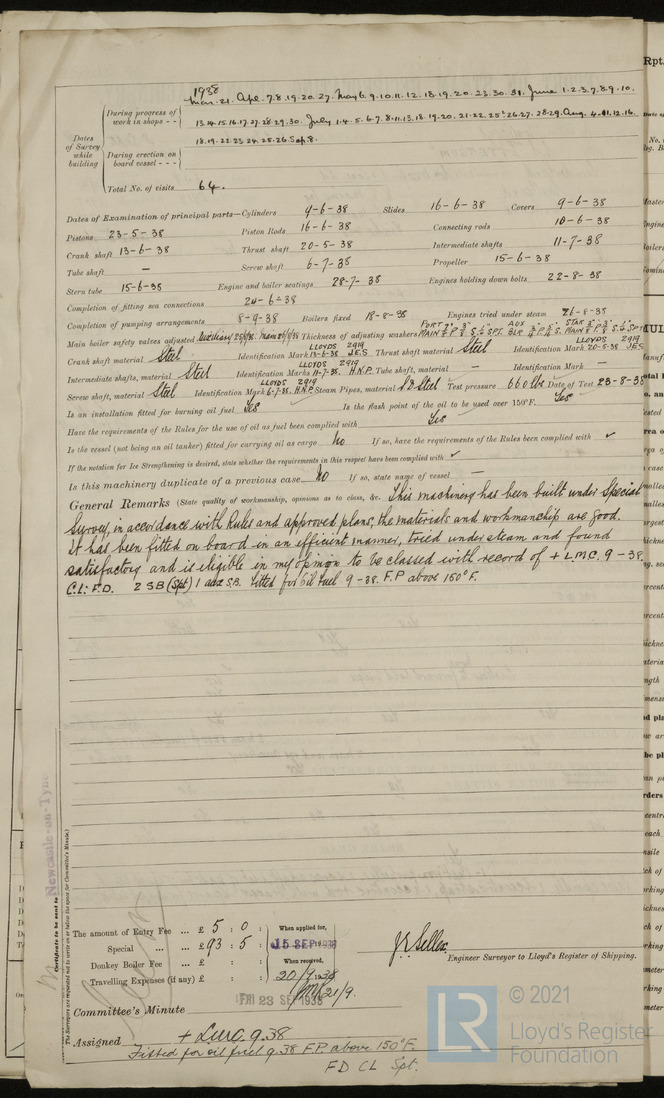 1938
Mar. 21. Apl. 7.8.19.20.27. May 6.9.10.11.12.18.19.20.23.30.31. June 1.2.3.7.8.9.10.
During progress of work in shops - - 13.14.15.16.17.27.28.29.30. July 1.4.5.6.7.8.11.13.18.19.20.21.22.25.26.27.28.29. Aug. 4.11.12.16.
18.19.22.23.24.25.26 Sep. 8.
Dates of Survey while building
During erection on board vessel - - -
Total No. of visits 64.
Dates of Examination of principal parts—Cylinders 9-6-38 Slides 16-6-38 Covers 9-6-38
Pistons 23-5-38 Piston Rods 16-6-38 Connecting rods 10-6-38
Crank shaft 13-6-38 Thrust shaft 20-5-38 Intermediate shafts 11-7-38
Tube shaft — Screw shaft 6-7-38 Propeller 15-6-38
Stern tube 15-6-38 Engine and boiler seatings 28-7-38 Engines holding down bolts 22-8-38
Completion of fitting sea connections 20-6-38
Completion of pumping arrangements 8-9-38 Boilers fixed 18-8-38 Engines tried under steam 26-8-38
Main boiler safety valves adjusted Thickness of adjusting washers
Crank shaft material Steel Identification Mark LLOYDS 2919 13-6-38 J.E.S Thrust shaft material Steel Identification Mark LLOYDS 2919 20-5-38 JES
Intermediate shafts, material Steel Identification Marks LLOYDS 2919 11-7-38. H.N.P. Tube shaft, material — Identification Mark —
Screw shaft, material Steel Identification Mark LLOYDS 2919 6-7-38. H.N.P. Steam Pipes, material Steel Test pressure 660 lbs Date of Test 23-8-38
Is an installation fitted for burning oil fuel Yes Is the flash point of the oil to be used over 150°F. Yes
Have the requirements of the Rules for the use of oil as fuel been complied with Yes
Is the vessel (not being an oil tanker) fitted for carrying oil as cargo No If so, have the requirements of the Rules been complied with ✓
If the notation for Ice Strengthening is desired, state whether the requirements in this respect have been complied with ✓
Is this machinery duplicate of a previous case No If so, state name of vessel —
General Remarks (State quality of workmanship, opinions as to class, &c. This machinery has been built under Special
Survey, in accordance with Rules and approved plans, the materials and workmanship are good.
It has been fitted on board in an efficient manner, tried under steam and found
satisfactory and is eligible in my opinion to be classed with record of + L.M.C. 9-38.
C.L: F.D. 2 SB (Spt) 1 aux S.B. fitted for oil fuel 9-38. F.P above 150°F.
Newcastle-on-Tyne
Certificate to be sent to
(The Surveyors are requested not to write on or below the space for Committee's Minute.)
The amount of Entry Fee ... £ 5 : 0 : When applied for,
Special ... ... £ 93 : 5 : 15 SEP 1938
Donkey Boiler Fee ... £ : : When received,
Travelling Expenses (if any) £ : : 20/9 1938
21/9.
Engineer Surveyor to Lloyd's Register of Shipping.
FRI 23 SEP 1938
Committee's Minute
Assigned + Lmc 9.38
Fitted for oil fuel 9.38 F.P. above 150°F.
FD CL Spt.
LR
© 2021
Lloyd's Register
Foundation
Rpt.